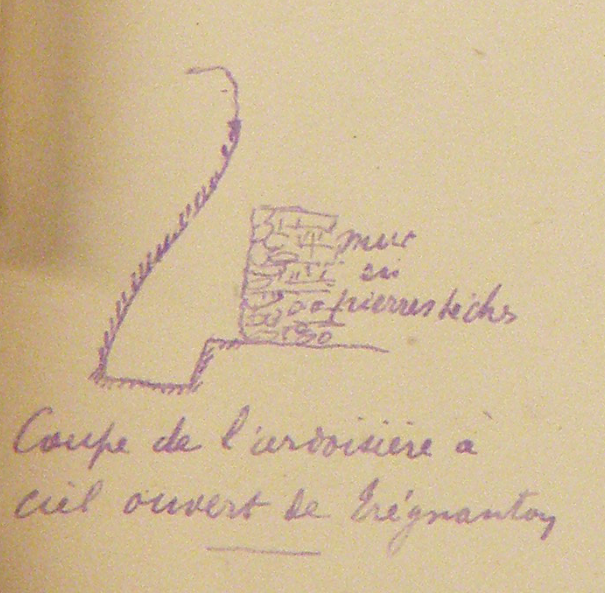 mur
en
pierres sèches
Coupe de l'ardoisière à
ciel ouvert de Trégnanton